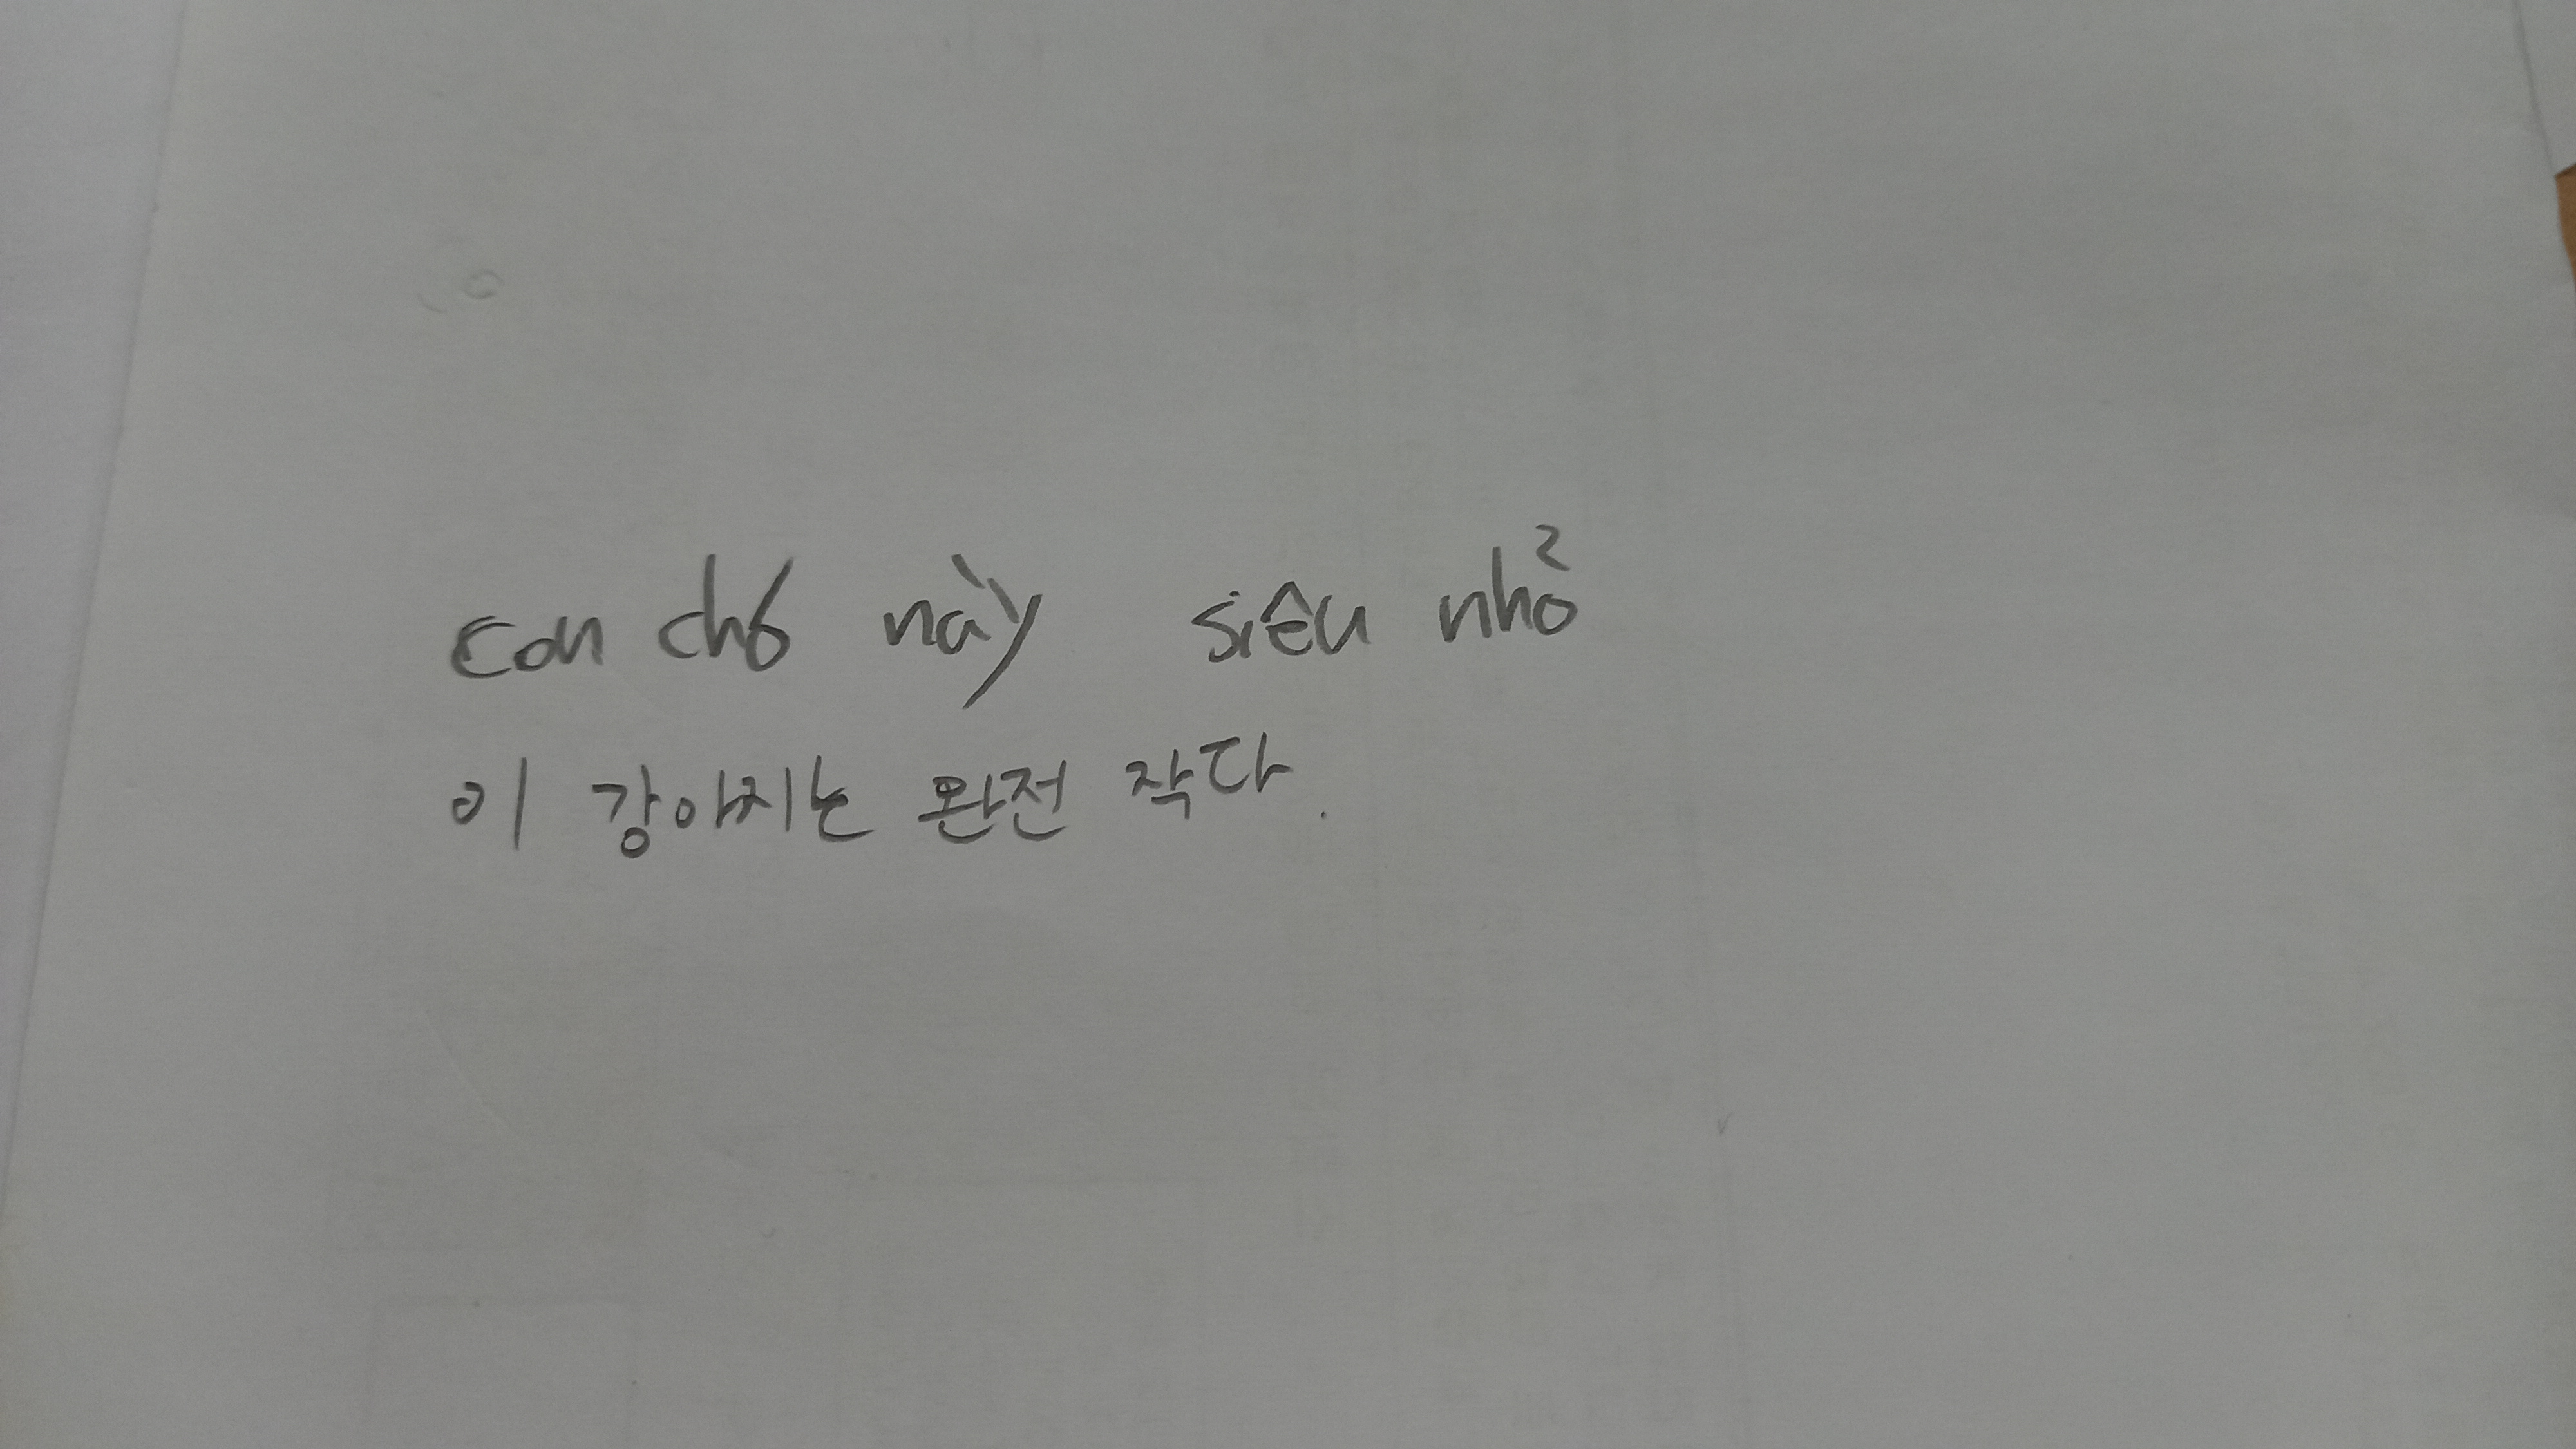 con chó này siêu nhỏ
이 강아지는 완전 작다.